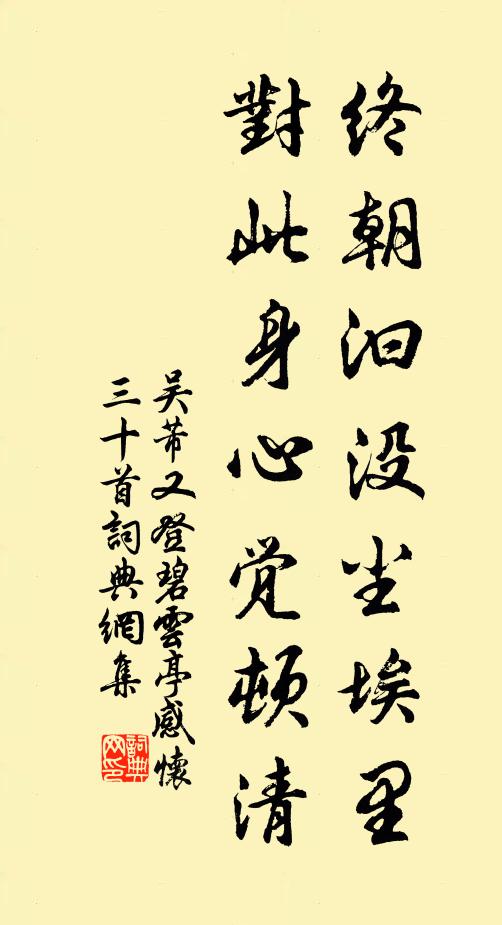 终朝汩没尘埃里
對此身心觉頓清
吴芾又登碧雲亭感懷
三十首詞典網集
詞典
网印